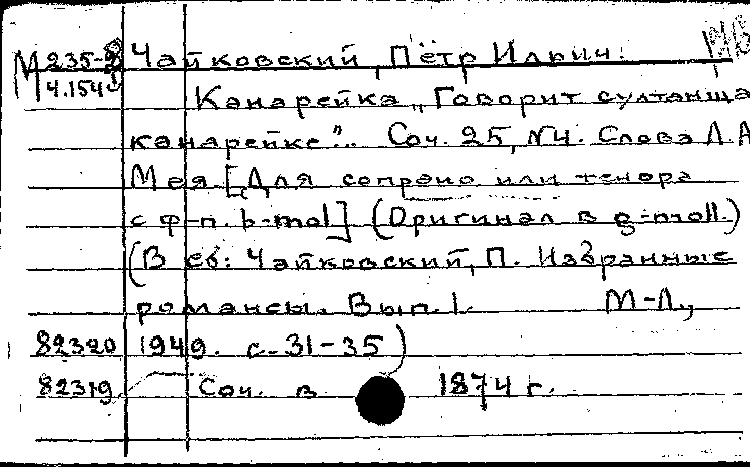 М 235-8 Чайковский, Пётр Ильич.
4.154
Канарейка „Говорит султанша
канарейке"... Соч. 25, №4. Слова Л.А.
Мея [Для сопрано или тенора
с ф-п. b-mol] (Оригинал в g-moll.)
(В сб: Чайковский, П. Избранные
романсы. Вып. 1. М-Л.,
82320 1949. с. 31-35)
82319 Соч. в 1874 г.